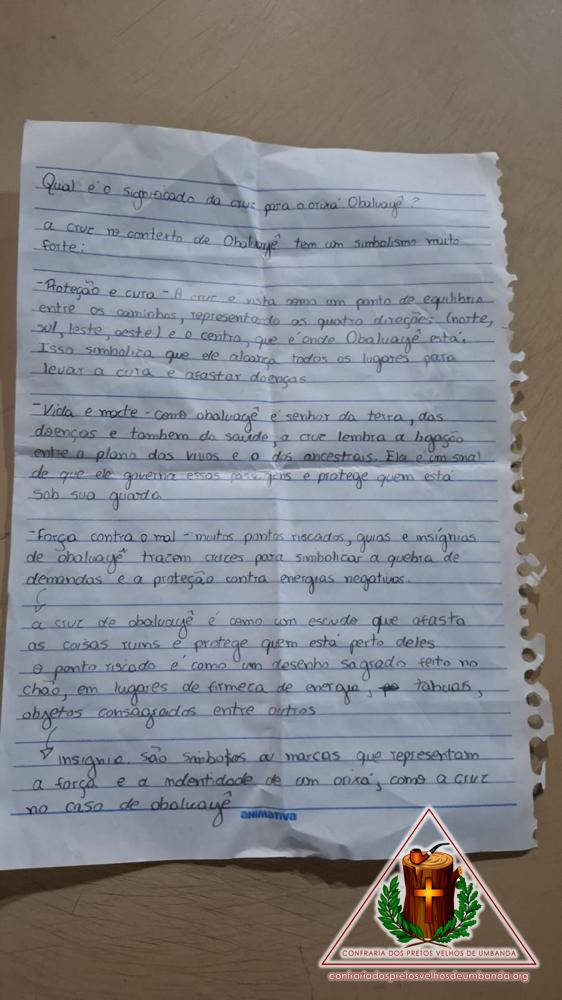 Qual é o significado da cruz para o orixá Obaluayê?
a cruz no contexto de Obaluayê tem um simbolismo muito
forte:
-Proteção e cura - A cruz e vista como um ponto de equilíbrio
entre os caminhos, representando as quatro direções (norte,
sul, leste, oeste) e o centro, que é onde Obaluayê está.
Isso simboliza que ele alcança todos os lugares para
levar a cura e afastar doenças.
-Vida e morte - como obaluayê é senhor da terra, das
doenças e tambem da saúde, a cruz lembra a ligação
entre o plano dos vivos e o dos ancestrais. Ela é um sinal
de que ele governa essas passagens e protege quem está
sob sua guarda.
-Força contra o mal - muitos pontos riscados, guias e insígnias
de obaluayê trazem cruzes para simbolizar a quebra de
demandas e a proteção contra energias negativas.
a cruz de obaluayê é como um escudo que afasta
as coisas ruins e protege quem está perto deles
o ponto riscado é como um desenho sagrado feito no
chão, em lugares de firmeca de energia, tabuas,
objetos consagrados entre outros
insignia são símbolos ou marcas que representam
a força e a indentidade de um orixá, como a cruz
no caso de obaluayê
ANIMATIVA
CONFRARIA DOS PRETOS VELHOS DE UMBANDA
confrariadospretosvelhosdeumbanda.org